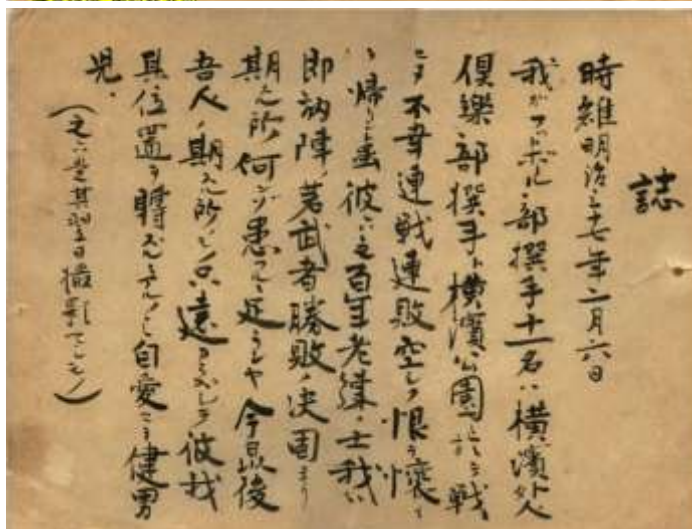 誌
時維明治三十七年二月六日
我がフットボール部撰手十一名ハ横濱外人
倶樂部撰手ト横濱公園ニ於テ戰
ヒ不幸連戰連敗空シク恨ヲ懷
ヒ帰リト虽彼ハ之百年老練ノ士我ハ
即 初陣ノ若武者勝敗ノ決固ヨリ
期スル所何ゾ患フルニ足ランヤ今昆後
吾人ノ期スル所ハ只遠カラズシテ彼我
其位置ヲ轉ズルニアルノミ自愛セヨ健男
児。
(之ハ是其翌日撮影セシモノ)